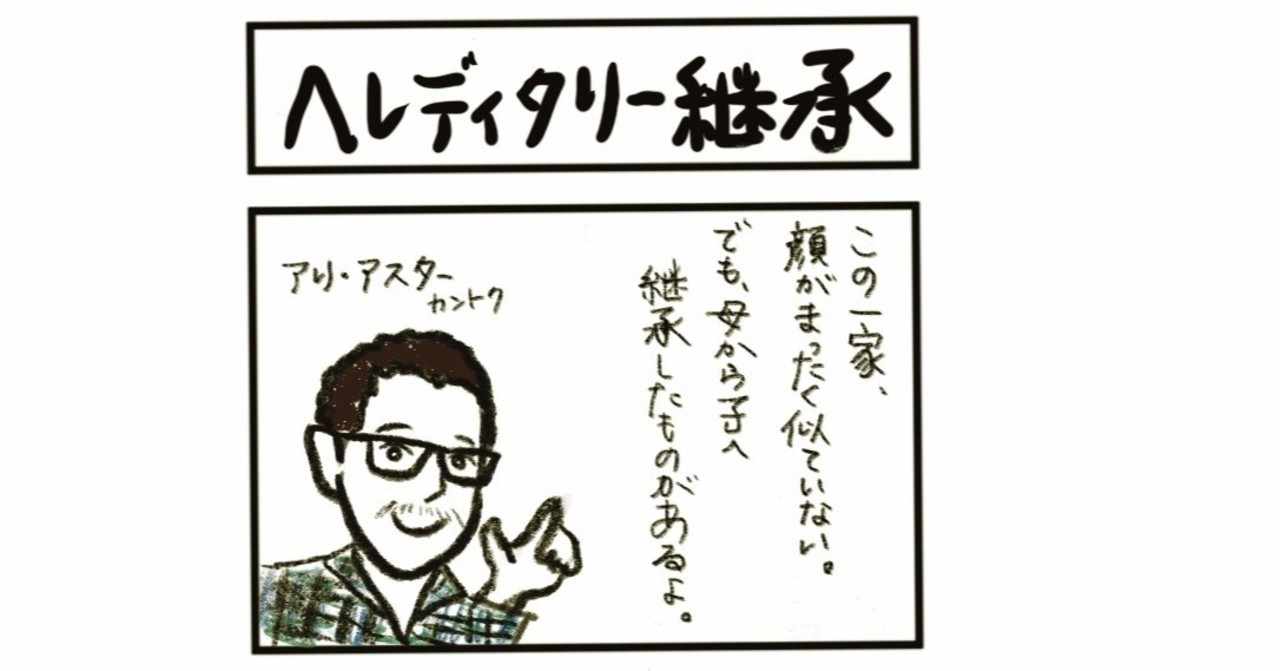 ヘレディタリー継承
この一家、
顔がまったく似ていない。
でも、母から子へ
継承したものがあるよ。
アリ・アスター
カントク